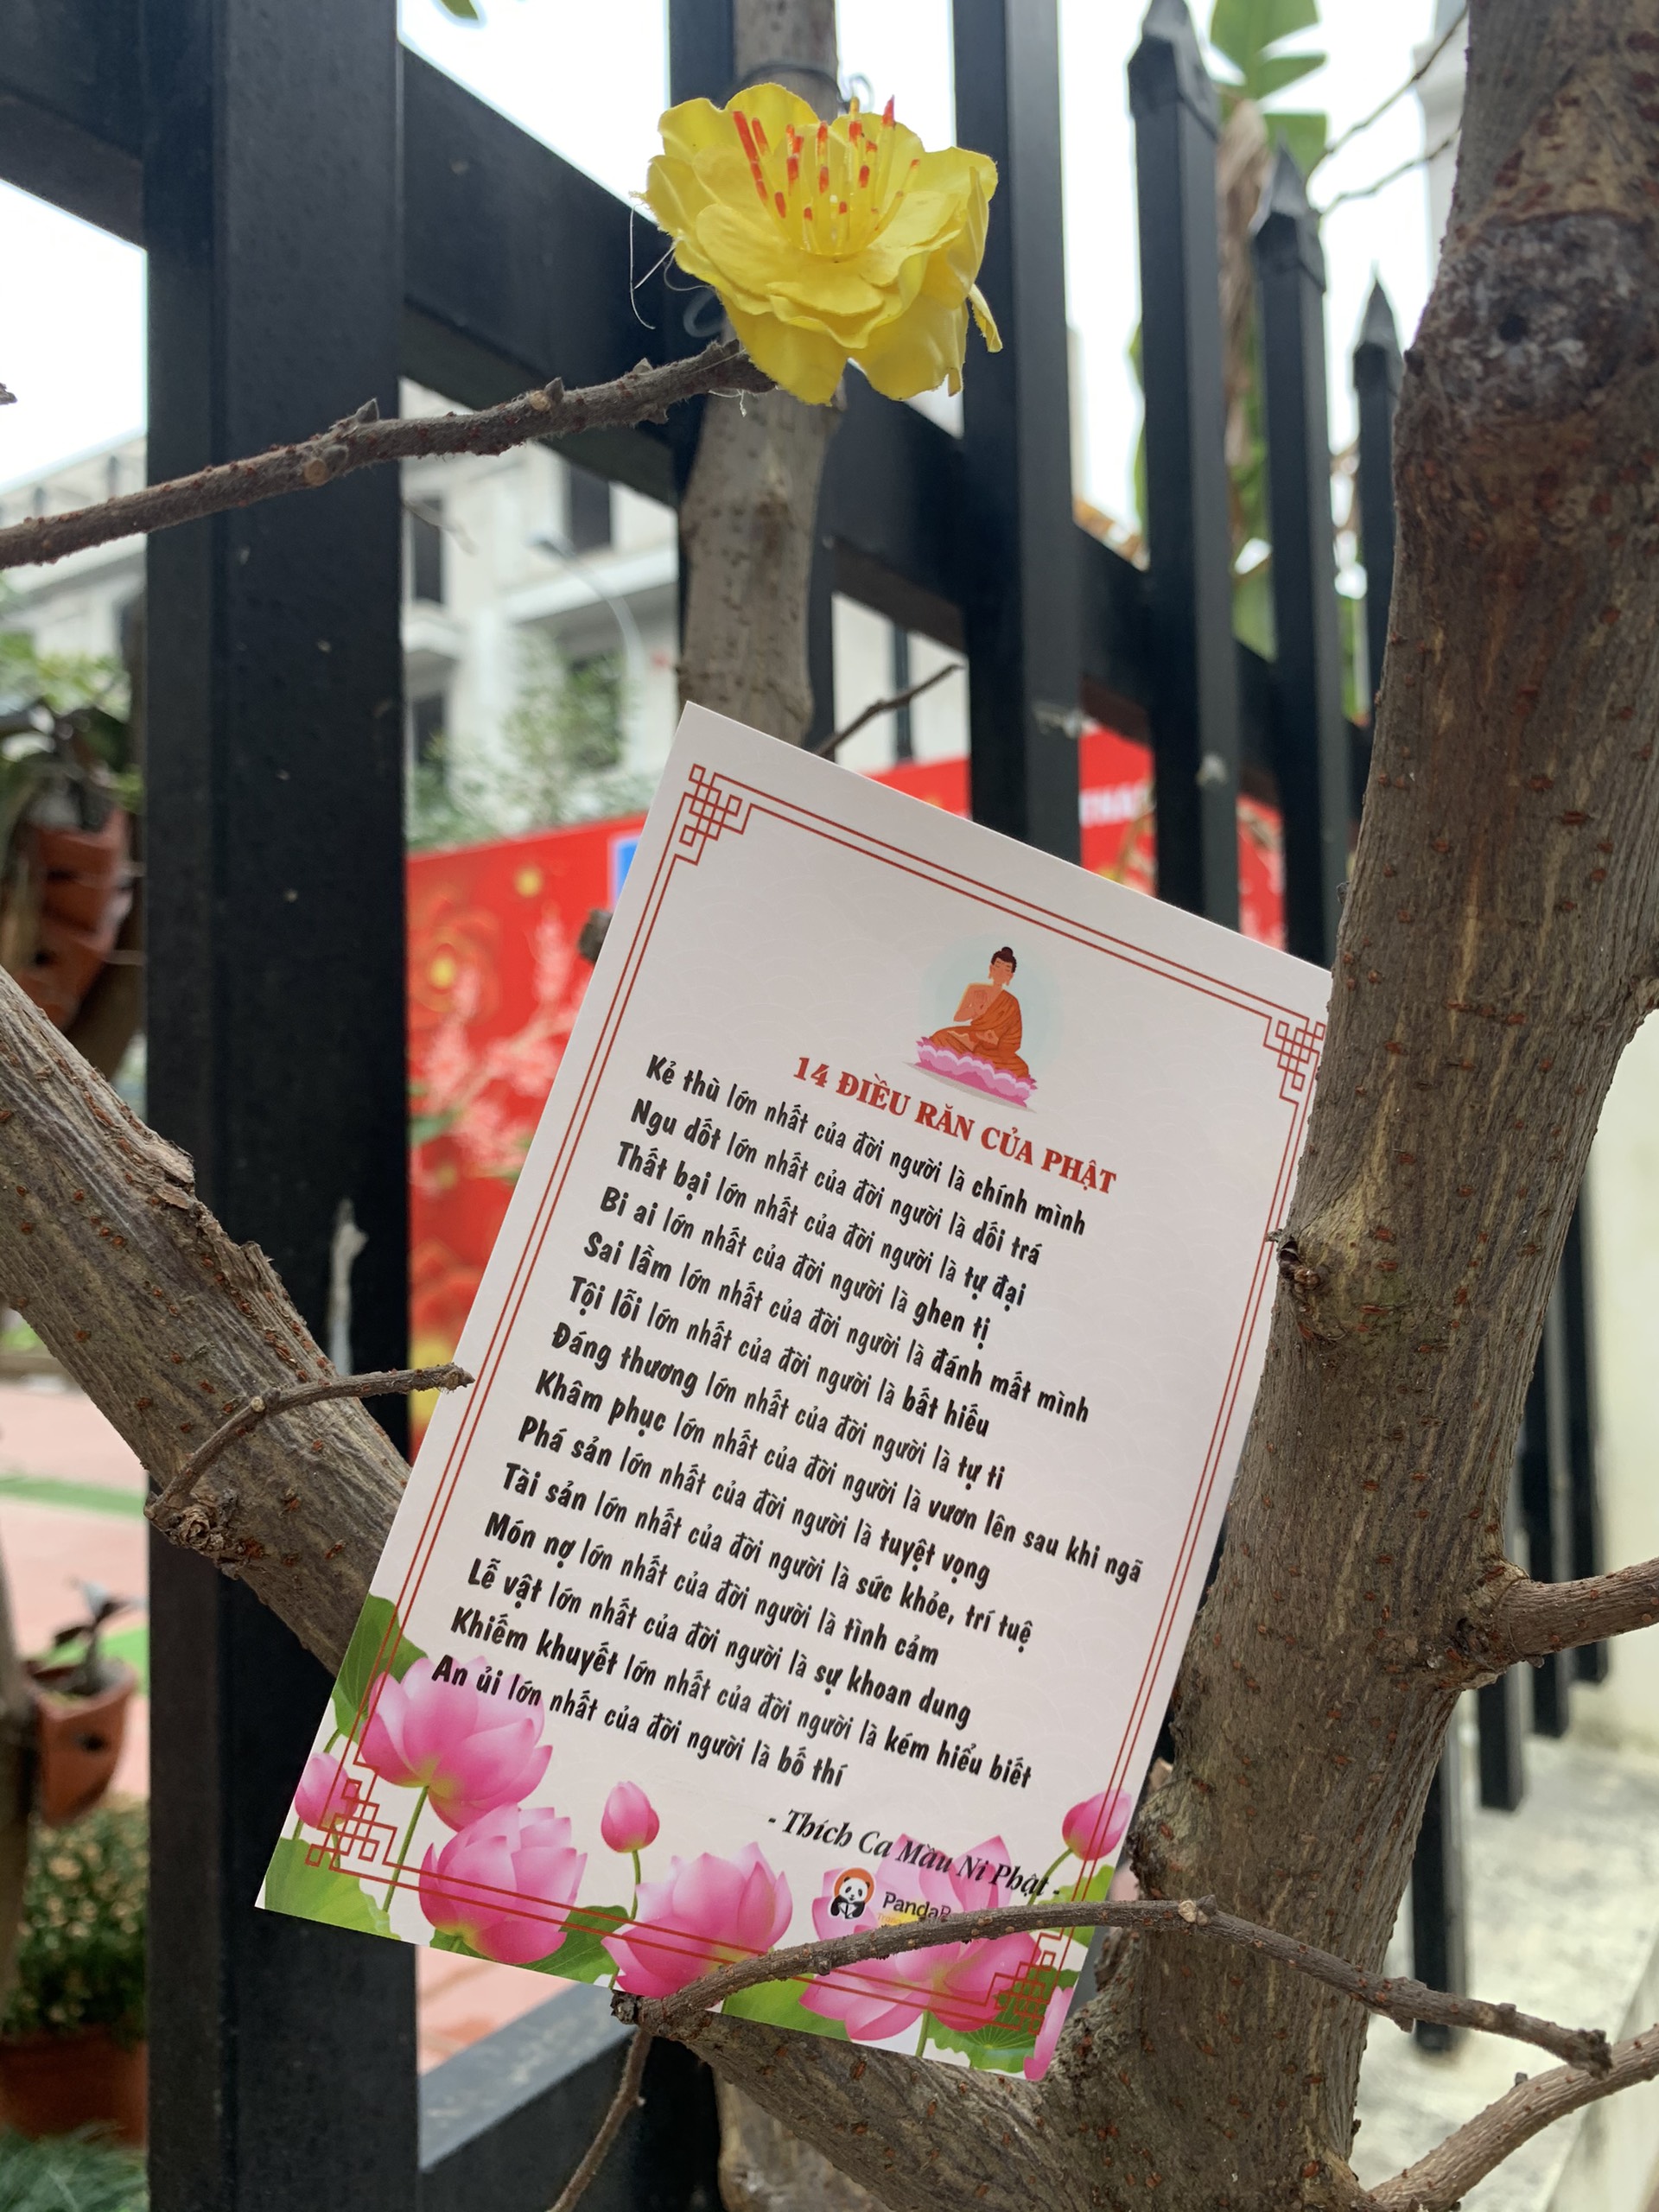 14 ĐIỀU RĂN CỦA PHẬT
Kẻ thù lớn nhất của đời người là chính mình
Ngu dốt lớn nhất của đời người là dối trá
Thất bại lớn nhất của đời người là tự đại
Bi ai lớn nhất của đời người là ghen tị
Sai lầm lớn nhất của đời người là đánh mất mình
Tội lỗi lớn nhất của đời người là bất hiếu
Đáng thương lớn nhất của đời người là tự ti
Khâm phục lớn nhất của đời người là vươn lên sau khi ngã
Phá sản lớn nhất của đời người là tuyệt vọng
Tài sản lớn nhất của đời người là sức khỏe, trí tuệ
Món nợ lớn nhất của đời người là tình cảm
Lễ vật lớn nhất của đời người là sự khoan dung
Khiếm khuyết lớn nhất của đời người là kém hiểu biết
An ủi lớn nhất của đời người là bố thí
- Thích Ca Mâu Ni Phật -